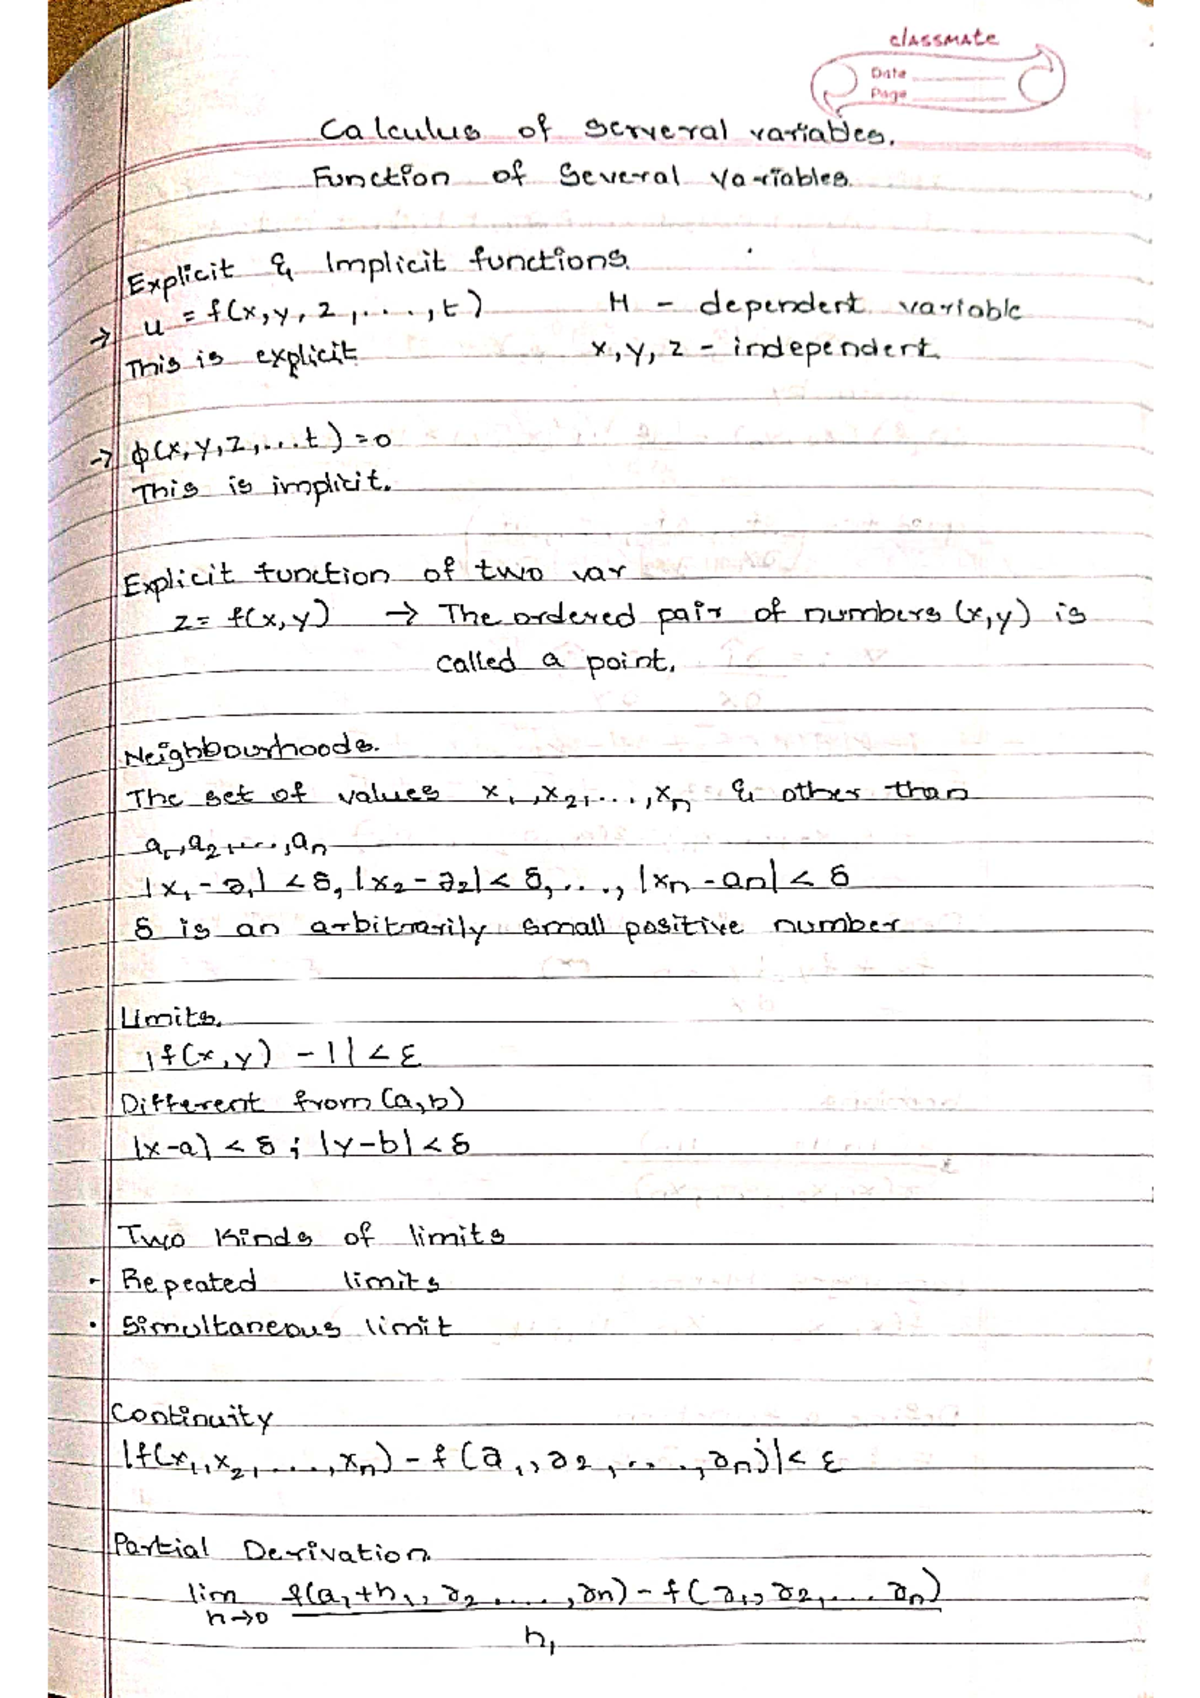 classmate
Date
Page
Calculus of serveral variables.
Function of Several variables.
Explicit & Implicit functions.
→ u = f(x,y,z,...,t) H - dependent variable
This is explicit x,y,z - independent
→ φ(x,y,z,...t) = 0
This is implicit.
Explicit function of two var
z = f(x,y) → The ordered pair of numbers (x,y) is
called a point.
Neighbourhoods.
The set of values x₁,x₂,...,xₙ & other than
a₁,a₂,...,aₙ
|x₁-a₁|<δ, |x₂-a₂|<δ,..., |xₙ-aₙ|<δ
δ is an arbitrarily small positive number
Limits.
|f(x,y) - l|<ε
Different from (a,b)
|x-a|<δ ; |y-b|<δ
Two kinds of limits
- Repeated limits
• Simultaneous limit
Continuity
|f(x₁,x₂,...,xₙ) - f(a₁,a₂,...,aₙ)|<ε
Partial Derivation.
lim f(a₁+h₁,a₂....,an) - f(a₁,a₂,...aₙ)
h→0 h₁